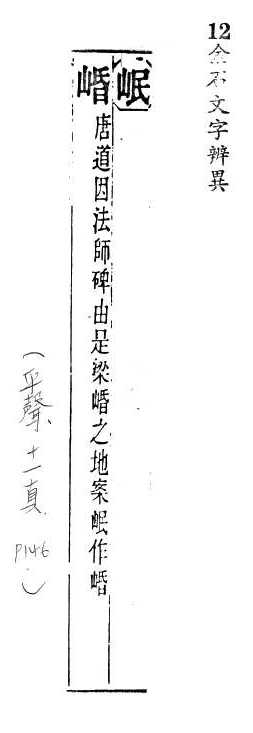 12金石文字辨異
岷
㟭 唐道因法師碑由是梁㟭之地案岷作㟭
(平聲、十一真 P146)